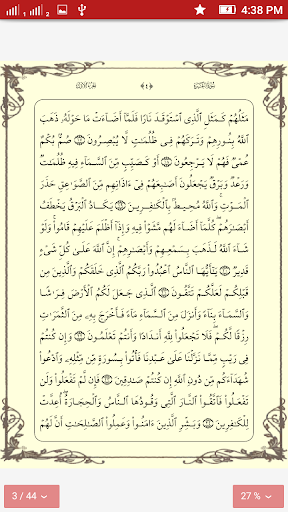 4:38 PM
الجزء الأول ﴿٤﴾ سورة البقرة
مَثَلُهُمْ كَمَثَلِ ٱلَّذِى ٱسْتَوْقَدَ نَارًا فَلَمَّآ أَضَآءَتْ مَا حَوْلَهُۥ ذَهَبَ
ٱللَّهُ بِنُورِهِمْ وَتَرَكَهُمْ فِى ظُلُمَٰتٍ لَّا يُبْصِرُونَ ۝١٧ صُمٌّۢ بُكْمٌ
عُمْىٌ فَهُمْ لَا يَرْجِعُونَ ۝١٨ أَوْ كَصَيِّبٍ مِّنَ ٱلسَّمَآءِ فِيهِ ظُلُمَٰتٌ
وَرَعْدٌ وَبَرْقٌ يَجْعَلُونَ أَصَٰبِعَهُمْ فِىٓ ءَاذَانِهِم مِّنَ ٱلصَّوَٰعِقِ حَذَرَ
ٱلْمَوْتِ ۚ وَٱللَّهُ مُحِيطٌۢ بِٱلْكَٰفِرِينَ ۝١٩ يَكَادُ ٱلْبَرْقُ يَخْطَفُ
أَبْصَٰرَهُمْ ۖ كُلَّمَآ أَضَآءَ لَهُم مَّشَوْا۟ فِيهِ وَإِذَآ أَظْلَمَ عَلَيْهِمْ قَامُوا۟ ۚ وَلَوْ
شَآءَ ٱللَّهُ لَذَهَبَ بِسَمْعِهِمْ وَأَبْصَٰرِهِمْ ۚ إِنَّ ٱللَّهَ عَلَىٰ كُلِّ شَىْءٍ
قَدِيرٌ ۝٢٠ يَٰٓأَيُّهَا ٱلنَّاسُ ٱعْبُدُوا۟ رَبَّكُمُ ٱلَّذِى خَلَقَكُمْ وَٱلَّذِينَ مِن
قَبْلِكُمْ لَعَلَّكُمْ تَتَّقُونَ ۝٢١ ٱلَّذِى جَعَلَ لَكُمُ ٱلْأَرْضَ فِرَٰشًا
وَٱلسَّمَآءَ بِنَآءً وَأَنزَلَ مِنَ ٱلسَّمَآءِ مَآءً فَأَخْرَجَ بِهِۦ مِنَ ٱلثَّمَرَٰتِ
رِزْقًا لَّكُمْ ۖ فَلَا تَجْعَلُوا۟ لِلَّهِ أَندَادًا وَأَنتُمْ تَعْلَمُونَ ۝٢٢ وَإِن كُنتُمْ
فِى رَيْبٍ مِّمَّا نَزَّلْنَا عَلَىٰ عَبْدِنَا فَأْتُوا۟ بِسُورَةٍ مِّن مِّثْلِهِۦ وَٱدْعُوا۟
شُهَدَآءَكُم مِّن دُونِ ٱللَّهِ إِن كُنتُمْ صَٰدِقِينَ ۝٢٣ فَإِن لَّمْ تَفْعَلُوا۟ وَلَن
تَفْعَلُوا۟ فَٱتَّقُوا۟ ٱلنَّارَ ٱلَّتِى وَقُودُهَا ٱلنَّاسُ وَٱلْحِجَارَةُ ۖ أُعِدَّتْ
لِلْكَٰفِرِينَ ۝٢٤ وَبَشِّرِ ٱلَّذِينَ ءَامَنُوا۟ وَعَمِلُوا۟ ٱلصَّٰلِحَٰتِ أَنَّ لَهُمْ
3 / 44
27 %